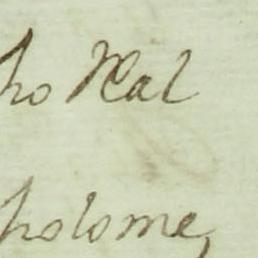 ho Real
holome,